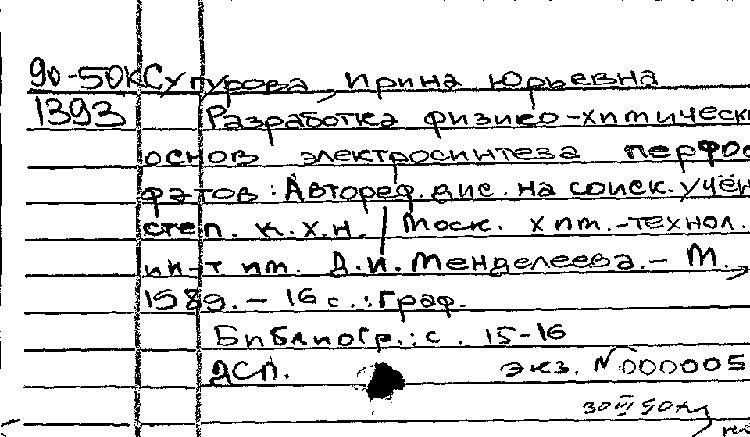 90-50К Супурова, Ирина Юрьевна
1393 Разработка физико-химически
основ электросинтеза перфос
фатов: Автореф. дис. на соиск. учен
степ. к.х.н. / Моск. хим.-технол.
ин-т им. Д.И. Менделеева. - М.,
1989. - 16 с.: граф.
Библиогр.: с. 15-16
ДСП. экз. N 000005